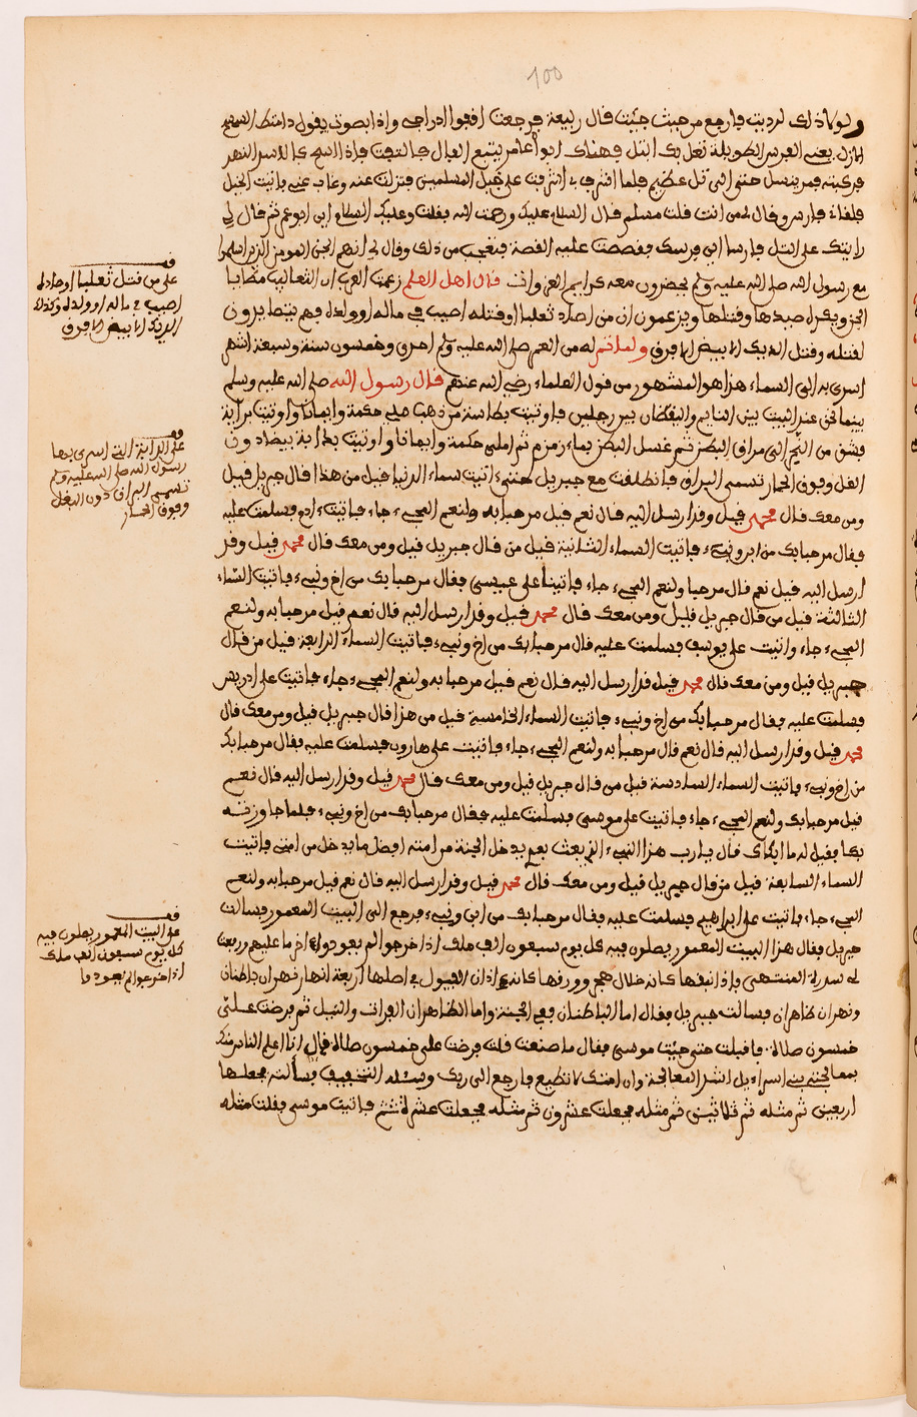 100
ولولا ذلك لرديت فارجع من حيث جئت قال ربيعة فرجعت اقفوا ادراجي واذا بصوت يقول
يعني الفرس الطويلة
فركبته فمر ينسل حتى اتى تل عظيم فلما اشرف اشرفت على خيل المسلمين فنزلت عنه وغاب عني فاتيت الخيل
فلقانى فارس وقال لي من انت فلت مسلم فال السلام عليك ورحمت الله ففلت وعليك السلام ثم فال لي
رايتك على التل فارسا اين فرسك ففصصت عليه الفصة فتعجب من ذلك وقال لي انهم الجن المومنين الذين اسلموا
مع رسول الله صلى الله عليه وسلم يحضرون معه قال اهل العلم زعمت العرب ان الثعالب مطايا
الجن ويكره صيدها وقتلها ويزعمون ان من اصاد ثعلبا او فتله اصيب في ماله او ولده فهم يتطيرون
لفتله وفتل الديك الابيض الافرق ولما تم له من العمر صلى الله عليه وسلم احدى وخمسون سنة وتسعة اشهر
اسري به الى السماء هذا هو المشهور من فول العلماء رضي الله عنهم قال رسول الله صلى الله عليه وسلم
بينما نحن عند البيت بين النايم واليفظان بين رجلين فاوتيت بطاسة من ذهب ملي حكمة وايمانا واوتيت بدابة
فشق من النحر الى مراق البطن ثم غسل البطن بماء زمزم ثم املي حكمة وايمانا واوتيت بدابة بيضا دون
البغل وفوق الحمار تسمى البراق فانطلفت مع جبريل حتى اتيت سماء الدنيا فيل من هذا فال جبريل فيل
ومن معك فال محمد فيل وفد ارسل اليه فال نعم فيل مرحبا به ولنعم المجيء جاء فاتيت ادم فسلمت عليه
فقال مرحبا بك من ابن ونبيء فاتيت السماء الثانية فيل من فال جبريل فيل ومن معك فال محمد فيل وفد
ارسل اليه فيل نعم فال مرحبا ولنعم المجيء جاء فاتينا على عيسى فقال مرحبا بك من اخ ونبيء فاتيت السماء
الثالثة فيل من فال جبريل فليل ومن معك فال محمد فيل وفد ارسل اليه فال نعم فيل مرحبا به ولنعم
المجيء جاء واتيت على يوسف فسلمت عليه فال مرحبا بك من اخ ونبيء فاتيت السماء الرابعة فيل من فال
جبريل فيل ومن معك فال محمد فيل فد ارسل اليه فال نعم فيل مرحبا به ولنعم المجيء جاء فاتيت على ادريس
فسلمت عليه ففال مرحبا بك من اخ ونبيء فاتيت السماء الخامسة فيل من هذا فال جبريل فيل ومن معك فال
محمد فيل وفد ارسل اليه فال نعم فال مرحبا به ولنعم المجيء جاء فاتيت على هارون فسلمت عليه بفال مرحبا بك
من اخ ونبيء فاتيت السماء السادسة فيل من فال جبريل فيل ومن معك فال محمد فيل وفد ارسل اليه فال نعم
فيل مرحبا بك ولنعم المجيء جاء فاتيت على موسى فسلمت عليه ففال مرحبا بك من اخ ونبيء فلما جاوزته
بكا ففيل له ما ابكاك فال يا رب هذا النبيء الذي بعث بعدي يدخل الجنة من امته افضل ما يدخل من امتي فاتيت
السماء السابعة فيل من فال جبريل فيل ومن معك فال محمد فيل وفد ارسل اليه فال نعم فيل مرحبا به ولنعم
المجيء جاء فاتيت على ابراهيم فسلمت عليه ففال مرحبا بك من ابن ونبيء فرجع الى البيت المعمور فسالت
جبريل ففال هذا البيت المعمور يصلون فيه كل يوم سبعون الف ملك اذا خرجوا لم يعودوا اخر ما عليهم ورفعت
لي سدرة المنتهى فاذا نبفها كانه خلال هجر وورفها كانه اذان الفيول في اصلها اربعة انهار نهران باطنان
ونهران ظاهران فسالت جبريل ففال اما الباطنان ففي الجنة واما الظاهران الفرات والنيل ثم فرضت علي
خمسون صلاة فافبلت حتى جئت موسى ففال ما صنعت فلت فرضت علي خمسون صلاة فال انا اعلم الناس منك
بمعالجتي بني اسراءيل اشد المعالجة وان امتك لا تطيع فارجع الى ربك وسئله التخفيف فسألته فجعلها
اربعين ثم مثله ثم ثلاثين ثم مثله فجعلت عشرون ثم مثله فجعلت عشرا فاتيت موسى ففلت مثله
قف
على من فتل ثعلبا او صاده
اصيب في ماله او ولده وكذلك
الديك الابيض الافرق
قف
على الدابة التي اسري بها
رسول الله صلى الله عليه وسلم
تسمى البراق دون البغل
وفوق الحمار
قف
على البيت المعمور يصلون فيه
كل يوم سبعون الف ملك
اذا خرجوا لم يعودوا